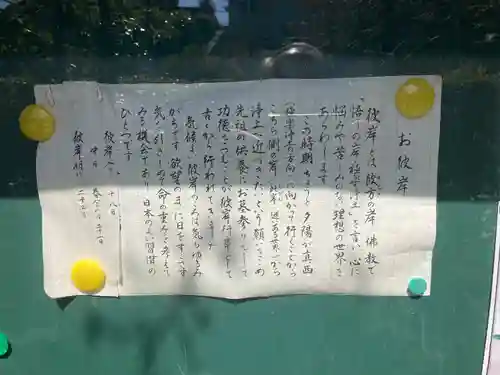 お彼岸
彼岸とは彼方の岸 佛教で
「悟りの岸・極楽浄土」を言い、心に
悩みや苦しみのない理想の世界を
あらわします
この時期、ちょうど夕陽が真西
(極楽浄土方向)へ向かって行くことから
こちら側の岸 此岸(迷いある世界)から
浄土へ近づきたいという願いをこめ
先祖の供養とお墓参りをして
功徳をつむことが彼岸行事として
古くから行われてきました
気候も良い彼岸のみは気もゆるみ
がちです 欲望のままに日をすごさず
気を引きしめ、命の重みを考えて
みる機会であり、日本のよい習慣の
ひとつです
彼岸入り 十八日
中日 春分の日 二十一日
彼岸明け 二十四日